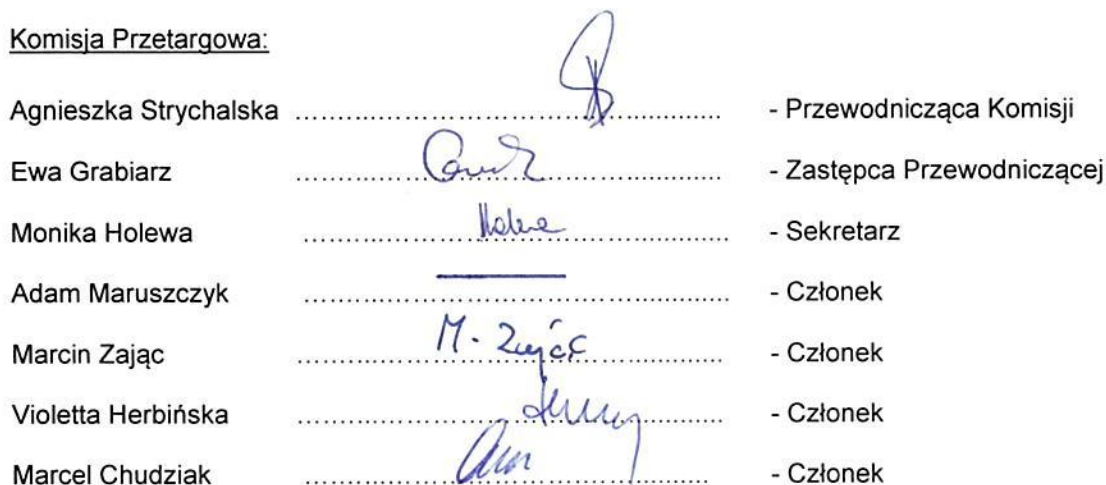 Komisja Przetargowa:
Agnieszka Strychalska ........................................ - Przewodnicząca Komisji
Ewa Grabiarz ........................................ - Zastępca Przewodniczącej
Monika Holewa ........................................ - Sekretarz
Adam Maruszczyk ........................................ - Członek
Marcin Zając ........M. Zając........ - Członek
Violetta Herbińska ........................................ - Członek
Marcel Chudziak ........................................ - Członek